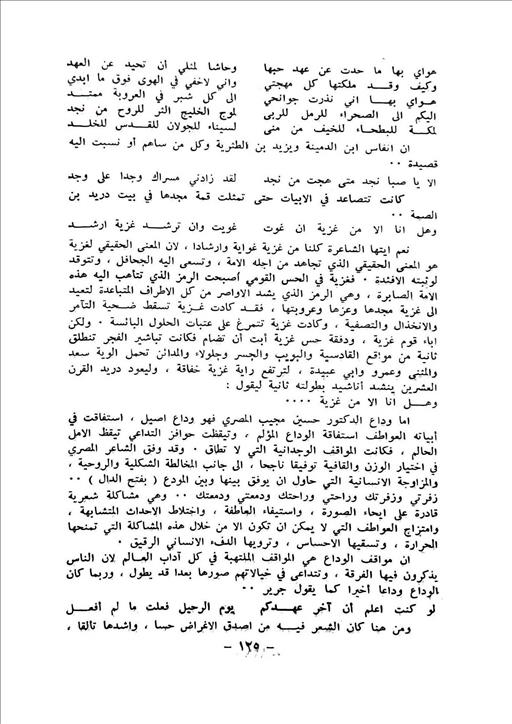 هواي بها ما حدت عن عهد حبها وحاشا لمثلي أن تحيد عن العهد
وكيف وقد ملكتها كل مهجتي واني لاخفي في الهوى فوق ما ابدي
هواي بها اني نذرت جوانحي الى كل شبر في العروبة ممتد
اليكم الى الصحراء للرمل للربى لموج الخليج الثر للروح من نجد
لمكة للبطحاء للخيف من منى لسيناء للجولان للقدس للخلد
ان انفاس ابن الدمينة ويزيد بن الطثرية وكل من ساهم أو نسبت اليه
قصيدة ٠٠
الا يا صبا نجد متى هجت من نجد لقد زادني مسراك وجدا على وجد
كانت تتصاعد في الابيات حتى تمثلت قمة مجدها في بيت دريد بن
الصمة ٠٠
وهل انا الا من غزية ان غوت غويت وان ترشد غزية ارشد
نعم ايتها الشاعرة كلنا من غزية غواية وارشادا ، لان المعنى الحقيقي لغزية
هو المعنى الحقيقي الذي تجاهد من اجله الامة ، وتسعى اليه الجحافل ، وتتوقد
لوثبته الافئدة ٠ فغزية في الحس القومي أصبحت الرمز الذي تتأهب اليه هذه
الامة الصابرة ، وهي الرمز الذي يشد الاواصر من كل الاطراف المتباعدة لتعيد
الى غزية مجدها وعزها وعروبتها ، فقد كادت غزية تسقط ضحية التآمر
والانخذال والتصفية ، وكادت غزية تتمرغ على عتبات الحلول اليائسة ٠ ولكن
اباء قوم غزية ، ودفقة حس غزية أبت أن تضام فكانت تباشير الفجر تنطلق
ثانية من مواقع القادسية والبويب والجسر وجلولاء والمدائن تحمل الوية سعد
والمثنى وعمرو وابي عبيدة ، لترتفع راية غزية خفاقة ، وليعود دريد القرن
العشرين ينشد أناشيد بطولته ثانية ليقول :
وهل انا الا من غزية ٠٠٠٠
اما وداع الدكتور حسين مجيب المصري فهو وداع اصيل ، استفاقت في
أبياته العواطف استفاقة الوداع المؤلم ، وتيقظت حوافز التداعي تيقظ الامل
الحالم ، فكانت المواقف الوجدانية التي لا تطاق ٠ وقد وفق الشاعر المصري
في اختيار الوزن والقافية توفيقا ناجحا ، الى جانب المخالطة الشكلية والروحية ،
والمزاوجة الانسانية التي حاول ان يوفق بينها وبين المودع ( بفتح الدال ) ٠٠
زفرتي وزفرتك وراحتي وراحتك ودمعتي ودمعتك ٠٠ وهي مشاكلة شعرية
قادرة على ايحاء الصورة ، واستيفاء العاطفة ، واختلاط الاحداث المتشابهة ،
وامتزاج العواطف التي لا يمكن ان تكون الا من خلال هذه المشاكلة التي تمنحها
الحرارة ، وتسقيها الاحساس ، وترويها الدفء الانساني الرقيق ٠
ان مواقف الوداع هي المواقف الملتهبة في كل آداب العالم لان الناس
يذكرون فيها الفرقة ، وتتداعى في خيالاتهم صورها بعدا قد يطول ، وربما كان
الوداع وداعا أخيرا كما يقول جرير ٠٠
لو كنت اعلم أن آخر عهدكم يوم الرحيل فعلت ما لم أفعل
ومن هنا كان الشعر فيه من اصدق الاغراض حسا ، واشدها تألقا ،
– ١٢٥ –